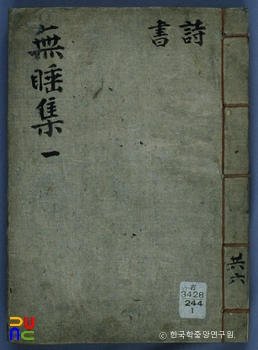 詩
書
無睡集 一
共六
古
3428
244
1
ⓒ 한국학중앙연구원